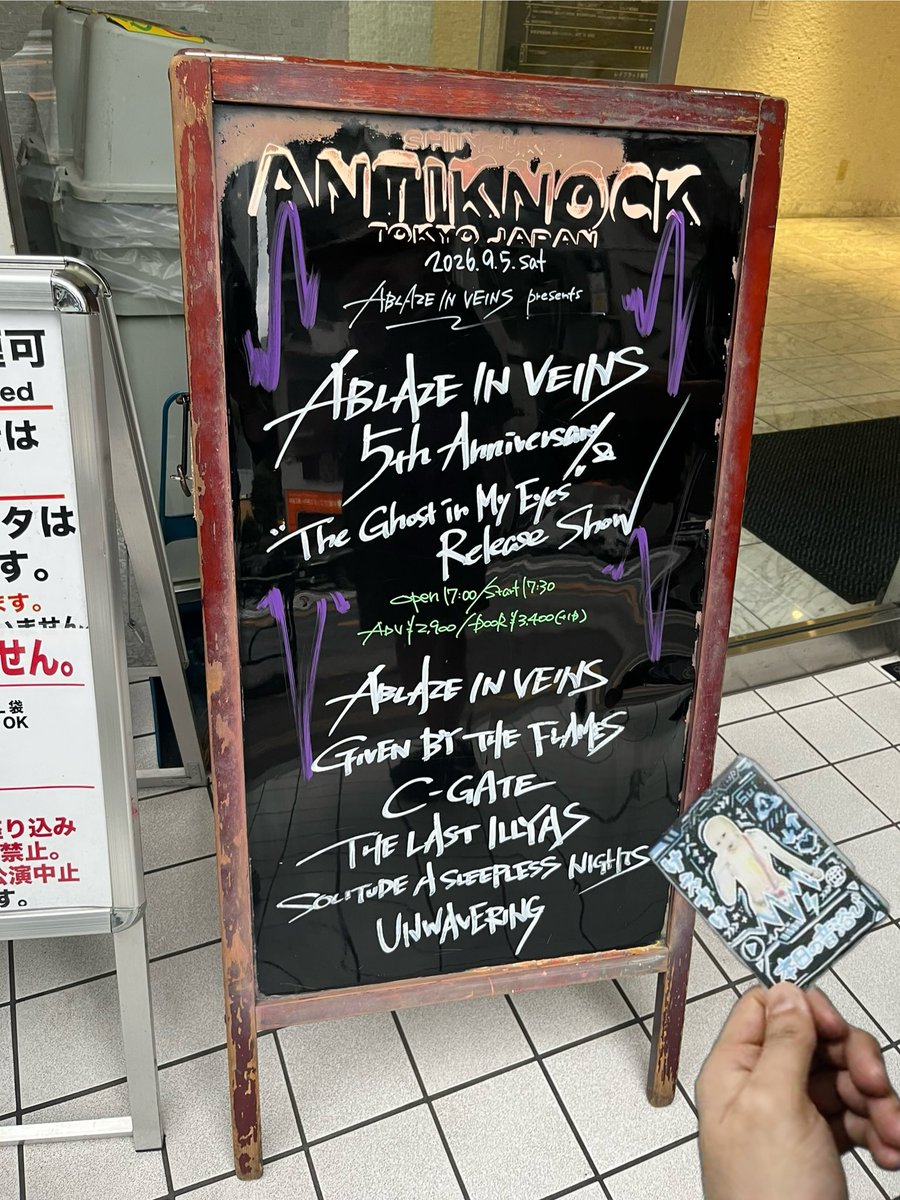 ANTIKNOCK
TOKYO JAPAN
2026.9.5.sat
ABLAZE IN VEINS presents
ABLAZE IN VEINS
5th Anniversary &
"The Ghost in My Eyes"
Release Show
open 17:00/Start 17:30
ADV ¥2,900/DOOR ¥3,400(+1D)
ABLAZE IN VEINS
GIVEN BY THE FLAMES
C-GATE
THE LAST ILLYAS
SOLITUDE A SLEEPLESS NIGHTS
UNWAVERING
可
ed
は
タは
す。
ます。
いません
せん。
袋
OK
り込み
禁止。
公演中止
す。